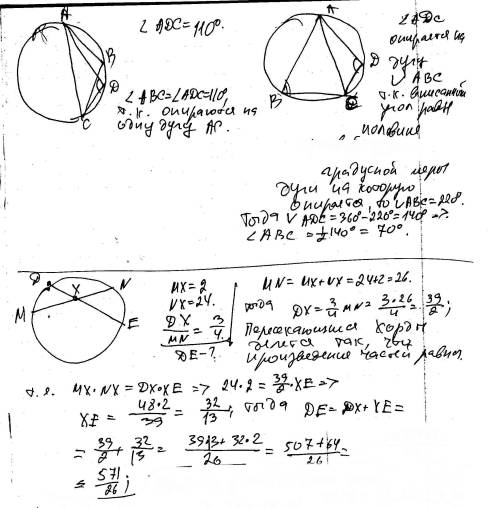 ∠ADC=110°.
∠ABC=∠ADC=110°,
т.к. опираются на
одну дугу AC.
A
B
D
C
∠ADC
опирается на
дугу
∪ABC
т.к. вписанный
угол равен
половине
градусной меры
дуги на которую
опирается, то ∪ABC=220°.
Тогда ∪ADC=360°-220°=140° =>
∠ABC=½140°=70°.
A
D
B
C
D
X
N
M
E
MX=2
NX=24.
DX/MN=3/4
DE-?
MN=MX+NX=24+2=26.
тогда DX=3/4 MN=3·26/4=39/2;
Пересекающиеся хорды
делятся так, что
произведения частей равны.
т.е. MX·NX=DX·XE => 24·2=39/2·XE =>
XE=48·2/39=32/13; тогда DE=DX+XE=
=39/2+32/13=39·13+32·2/26=507+64/26=
=571/26;